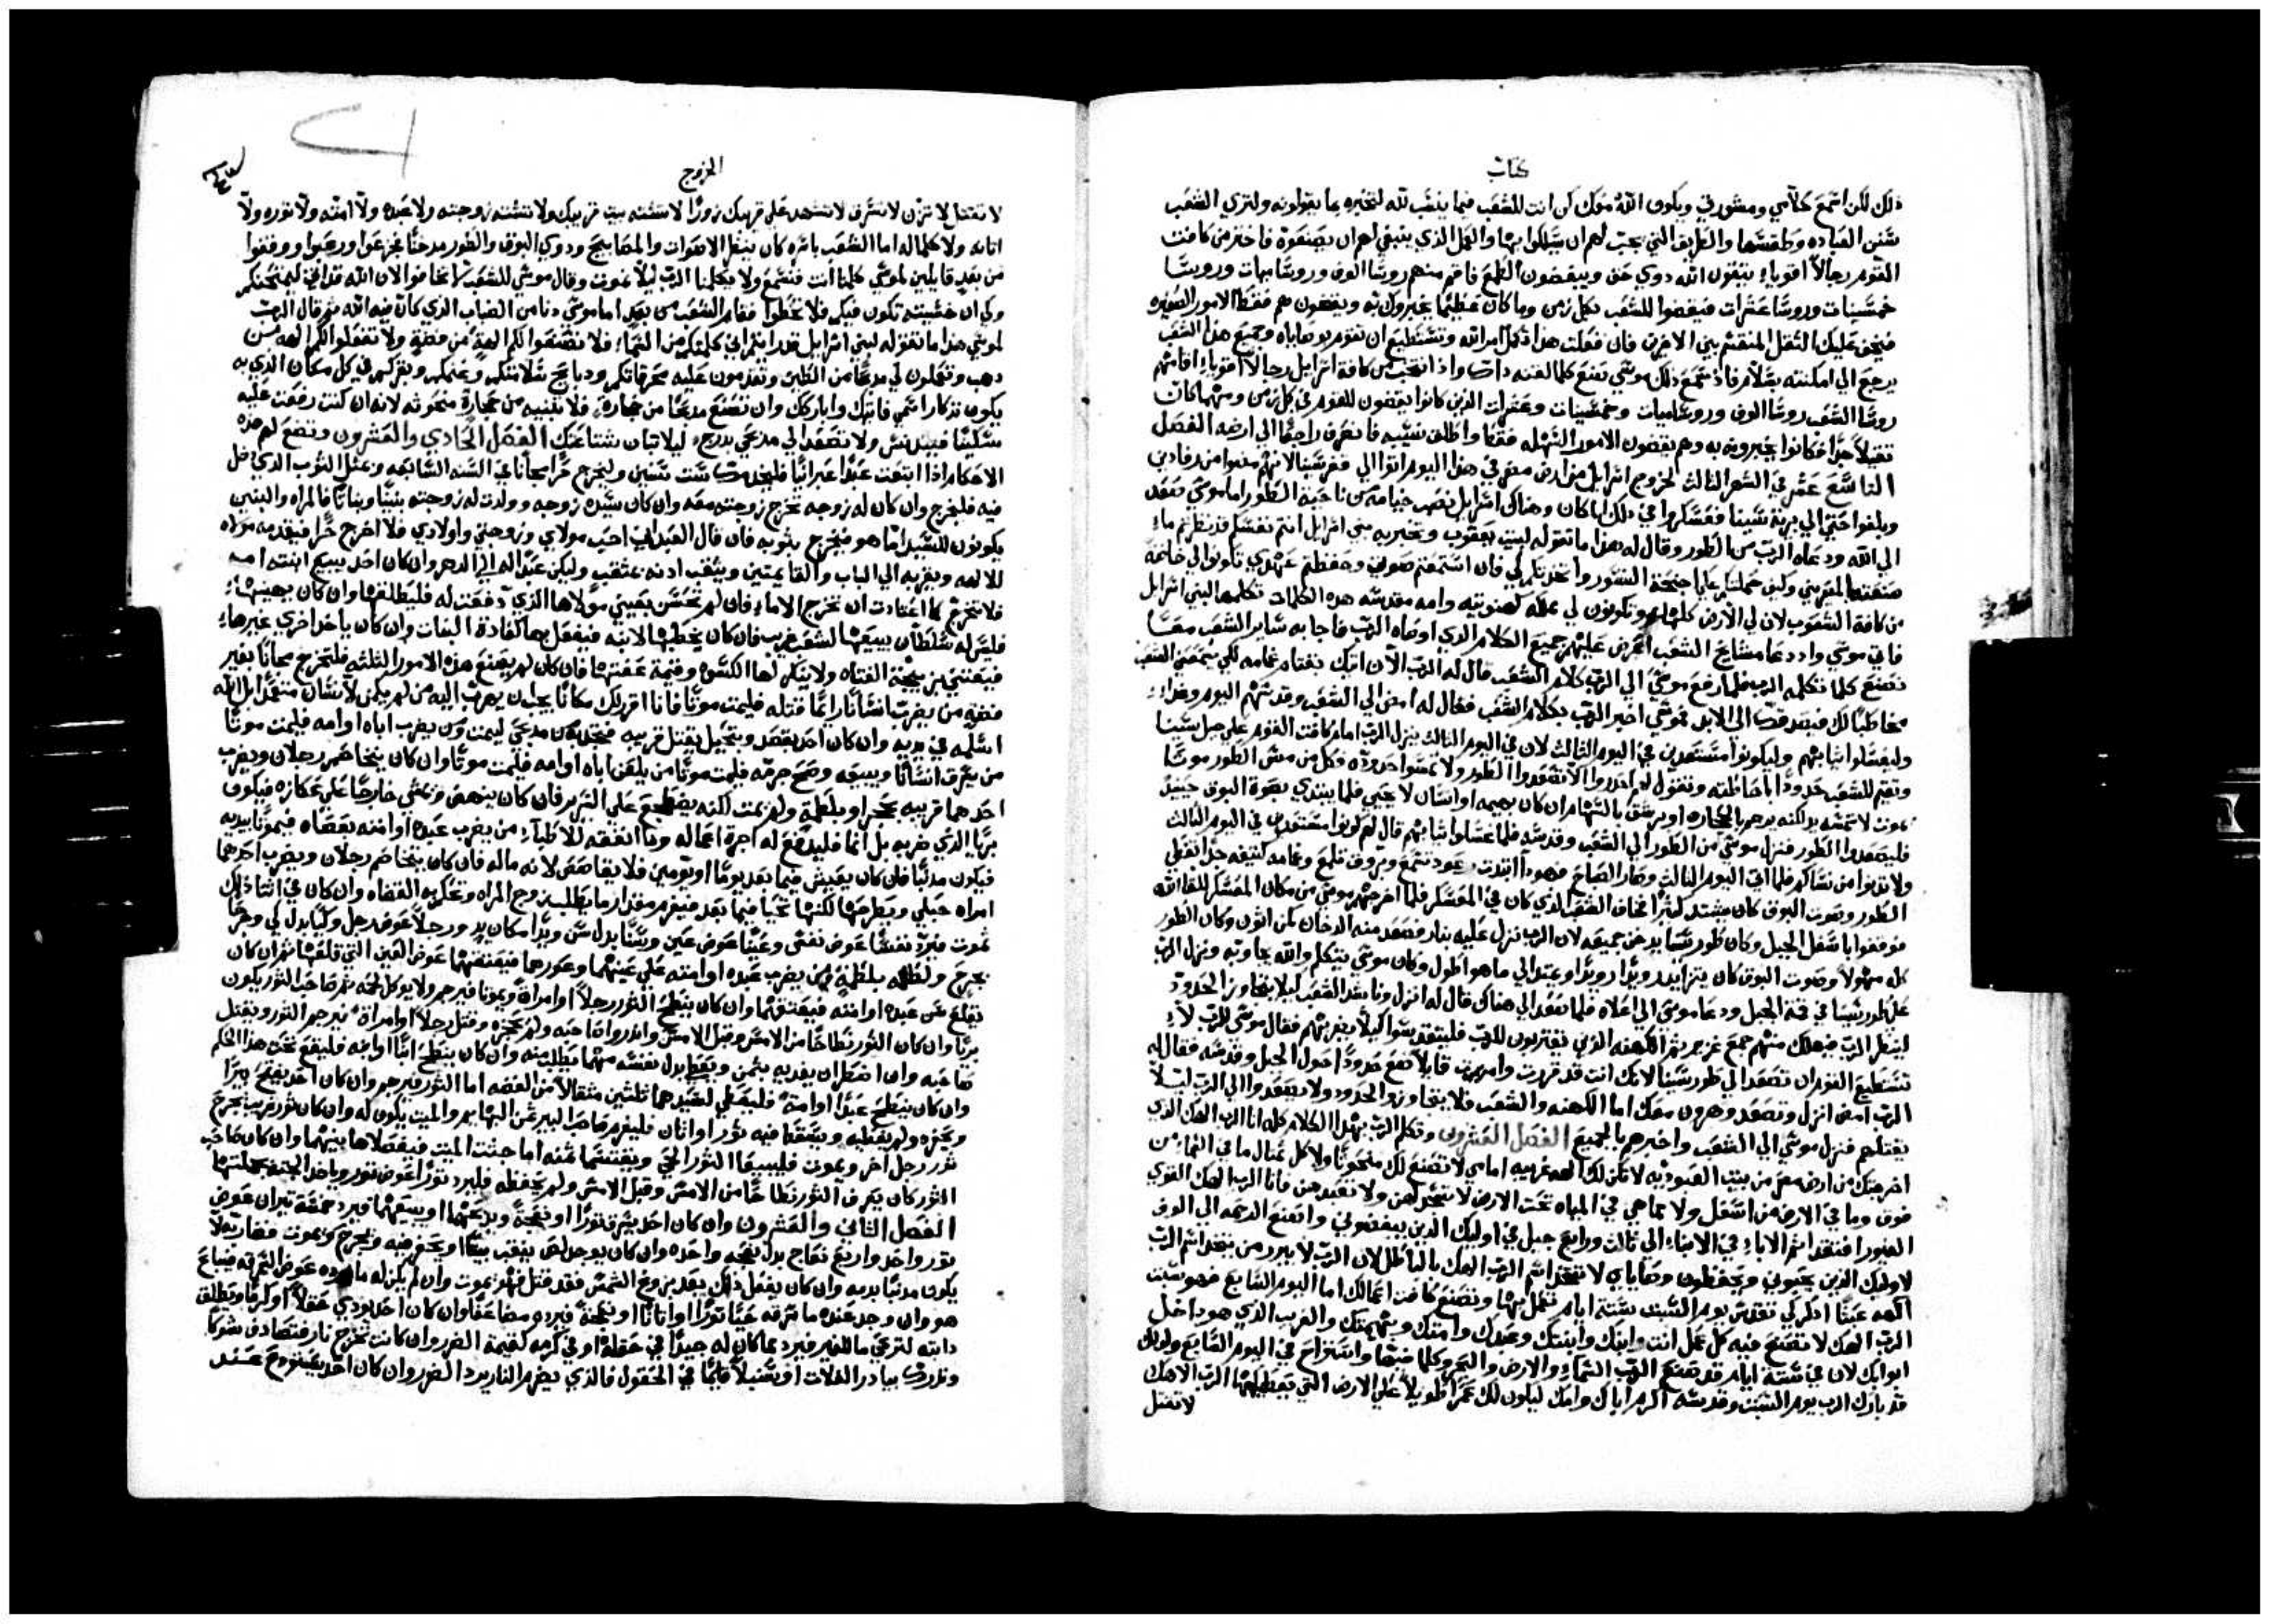 كتاب
ذلك لكن اسمع كلامي ومشورتي ويكون الله معك كن انت للشعب فيما ينسب لله لتخبره بما يقولونه ولتري الشعب
سنن العباده وطقسها والطريق التي يجب لهم ان يسلكوا بها والعمل الذي ينبغي لهم ان يصنعوه فاختر من كافت
القوم رجالاً اقوياء يتقون الله ذوي حق ويبغضون الطمع فاقم منهم روسا الوف وروسا ميات وروسا
خمسينات وروسا عشرات فيقضوا للشعب بكل زمن وما كان عظيما يخبروك به ويقضون هم فقط الامور الصغيره
فيخف عليك الثقل المنقسم بين الاخرين فان فعلت هذا تكمل امر الله وتستطيع ان تقوم بوصاياه وجميع هذا الشعب
يرجع الي امكنته بسلام فاذ سمع ذلك موسي صنع كلما لقنه ذاك واذ انتخب من كافة اسرايل رجالاً اقوياء اقامهم
روسا الشعب روسا الوف وروسا ميات وخمسينات وعشرات الذين كانوا يقضون للقوم في كل زمن ومهما كان
ثقيلاً جدا فكانوا يخبرونه به وهم يقضون الامور السهله فقط واطلق نسيبه فانصرف راجعا الي ارضه الفصل
التاسع عشر في الشهر الثالث لخروج اسرايل من ارض مصر في هذا اليوم اتوا الي قفر سينا لانهم مضوا من رفادين
وبلغوا حتي الي برية سينا فعسكروا في ذلك المكان وهناك اسرايل نصب خيامه من ناحية الطور اما موسي صعد
الي الله ودعاه الرب من الطور وقال له هذا ما تقوله لبيت يعقوب وتخبر به بني اسرايل انتم نفسكم قد نظرتم ما
صنعته بالمصريين وكيف حملتكم علي اجنحة النسور واتخذتكم لي فان استمعتم صوتي وحفظتم عهدي تكونوا لي خاصة
من كافة الشعوب لان لي الارض كلها وتكونون لي مملكه كهنوتيه وامه مقدسه هذه الكلمات تكلمها لبني اسرايل
فاتي موسي واذ دعا مشايخ الشعب اعرض عليهم جميع الكلام الذي اوصاه الرب فاجابه ساير الشعب معا
نصنع كلما تكلمه الرب فلما رفع موسي الي الرب كلام الشعب قال له الرب الآن اتيك بغتام غمامه لكي يسمعني الشعب
مخاطبا لك فيصدقك الي الابد فموسي اخبر الرب بكلام الشعب فقال له امض الي الشعب وقدسهم اليوم وغداء
وليغسلوا ثيابهم وليكونوا مستعدين في اليوم الثالث لان في اليوم الثالث ينزل الرب امام كافت القوم علي جبل سينا
وتقيم للشعب حدوداً باحاطته وتقول لهم احذروا الا تصعدوا الطور ولا تمسوا حدوده وكل من مس الطور موتا
يموت لا تمسه يد لكنه يرجم بالحجاره او يرشق بالسهام ان كان بهيمه او انسان لا يحيي فلما يبتدي بصوة البوق حينيذ
فليصعدوا الطور فنزل موسي من الطور الي الشعب وقدسه فلما غسلوا ثيابهم قال لهم كونوا مستعدين في اليوم الثالث
ولا تدنوا من نسايكم فلما اتي اليوم الثالث وصار الصباح فهوذا ابتدت رعود تسمع وبروق تلمع وغمامه كثيفه جدا تغطي
الطور وصوت البوق كان يشتد كثيرا فخاف الشعب الذي كان في المعسكر فلما اخرجهم موسي من مكان المعسكر للقا الله
فوقفوا باسفل الجبل وكان طور سينا يدخن جميعه لان الرب نزل عليه بنار فصعد منه الدخان كمن اتون وكان الطور
كله مهولاً وصوت البوق كان يتزايد رويدا رويدا ويمتد الي ما هو اطول وكان موسي يتكلم والله يجاوبه ونزل الرب
علي طور سينا في قمة الجبل ودعا موسي الي اعلاه فلما صعد الي هناك قال له انزل وناشد الشعب ليلا يتجاوز الحدود
لينظر الرب فيهلك منهم جمع غزير ثم الكهنه الذين يقتربون للرب فليتقدسوا كيلا يضربهم فقال موسي للرب لا
تستطيع القوم ان تصعد الي طور سينا لانك انت قد قررت وامرت قايلاً ضع حدوداً حول الجبل وقدسه فقال له
الرب امض انزل وتصعد وهرون معك اما الكهنه والشعب فلا يتجاوزوا الحدود ولا يصعدوا الي الرب ليلا
يقتلهم فنزل موسي الي الشعب واخبرهم بالجميع الفصل العشرون وتكلم الرب بهذا الكلام كله انا الرب الهك الذي
اخرجتك من ارض مصر من بيت العبوديه لا تكن لك الهه غريبه امامي لا تصنع لك منحوتا ولا كل تمثال ما في السماء من
فوق وما في الارض من اسفل ولا مما هي في المياه تحت الارض لا تسجد لهن ولا تعبدهن فانا الرب الهك القوي
الغيور افتقد اثم الاباء في الابناء الي ثالث ورابع جيل في اوليك الذين يبغضوني واصنع الرحمه الي الوف
لاوليك الذين يحبوني ويحفظون وصاياي لا تتخذ اسم الرب الهك بالباطل لان الرب لا يبرر من يتخذ اسم الرب
الهه عبثا اذكر لي تقديس يوم السبت ستة ايام تعمل بها وتصنع كافت اعمالك اما اليوم السابع فهو سبت
الرب الهك لا تصنع فيه كل عمل انت وابنك وابنتك وعبدك وامتك وبهيمتك والغريب الذي هو داخل
ابوابك لان في ستة ايام قد صنع الرب السماء والارض والبحر وكلما فيها واستراح في اليوم السابع ولذلك
قد بارك الرب يوم السبت وقدسه اكرم اباك وامك ليكون لك عمرا طويلاً علي الارض التي يعطيكها الرب الاهك
لا تقتل
الخروج
لا تقتل لا تزن لا تسرق لا تشهد علي قريبك زورا لا تشته بيت قريبك ولا تشته زوجته ولا عبده ولا امته ولا ثوره ولا
اتانه ولا كلما له اما الشعب باسره كان ينظر الاصوات والمصابيح ودوي البوق والطور مدخنا فجزعوا ورعبوا ووقفوا
من بعد قايلين لموسي كلمنا انت فنسمع ولا يكلمنا الرب ليلا نموت وقال موسي للشعب لا تخافوا لان الله قد اتي ليمتحنكم
وكي ان خشيته تكون فيكم فلا تخطوا فقام الشعب من بعد اما موسي دنا من الضباب الذي كان فيه الله ثم قال الرب
لموسي هذا ما تقوله لبني اسرايل قد رايتم اني كلمتكم من السماء فلا تصنعوا لكم الهة من فضة ولا تفعلوا لكم الهه من
ذهب وتعملون لي مذبحا من الطين وتقدمون عليه محرقاتكم وذبايح سلامتكم وغنمكم وبقركم في كل مكان الذي به
يكون تذكار اسمي فاتيك واباركك وان تصنع مذبحا من حجارة فلا تبنيه من حجارة منحوته لانه ان كنت رفعت عليه
سكينا فيتدنس ولا تصعد الي مذبحي بدرج ليلا تبان شناعتك الفصل الحادي والعشرون وتضع لهم هذه
الاحكام اذا ابتعت عبدا عبرانيا فليخدمك ست سنين وليخرج حرا مجانا في السنه السابعه وبمثل الثوب الذي دخل
فيه فليخرج وان كان له زوجه تخرج زوجته معه وان كان سيده زوجه وولدت له زوجته بنينا وبناتا فالمراه والبنين
يكونون للسيد اما هو فيخرج بثوبه فان قال العبد اني احب مولاي وزوجتي واولادي فلا اخرج حرا فيقدمه مولاه
للالهه ويقربه الي الباب والقايمتين ويثقب اذنه بمثقب وليكن عبدا له الي الدهر وان كان احد يبيع ابنته امه
فلا تخرج كما اعتادت ان تخرج الاماء فان لم تحسن بعيني مولاها الذي دفعت له فليطلقها وان كان يهينها
فليس له سلطان يبيعها لشعب غريب فان كان يخطبها لابنه فيفعل بها كعادة البنات وان كان ياخذ اخري غيرها
فيعتني بزيجة الفتاه ولا ينكر لها الكسوه وقيمة عفتها فان كان لم يصنع هذه الامور الثلثه فلتخرج مجانا بغير
فضه من يضرب انسانا رايما قتله فليمت موتا فانا اقرر لك مكانا يجب ان يهرب اليه من لم يكمن لانسان متعمدا بل الله
اسلمه في يديه وان كان احد يقصد ويتحيل بقتل قريبه فتخذه من مذبحي ليمت ومن يضرب اباه او امه فليمت موتا
من يسرق انسانا ويبيعه وصح جرمه فليمت موتا من يلعن اباه او امه فليمت موتا وان كان يتخاصم رجلان ويضرب
احدهما قريبه بحجر او بلطمة ولم يمت لكنه يضطجع علي السرير فان كان ينهض ويمشي خارجا علي عكازه فيكون
بريا الذي ضربه بل انما فليدفع له اجرة اعماله وما انفقه للاطباء من يضرب عبده او امته بعصاه فيموتا بيديه
فيكون مذنبا فان كان يعيش فيما بعد يوما او يومين فلا يقاصص لانه ماله فان كان يتخاصم رجلان ويضرب احدهما
امراه حبلي ويطرحها لكنها تحيا فيما بعد فيغرم مقدار ما يطلب زوج المراه وتحكم به القضاه وان كان في اثنا ذلك
تموت فيرد نفسا عوض نفس وعينا عوض عين وسنا بدل سن ويدا مكان يد ورجلاً عوض رجل وكيا بدل كي وجرحا
بجرح ولطمه بلطمة من يضرب عبده او امته علي عينهما وعورهما فيعتقهما عوض العين التي قلعها ثم ان كان
يقلع سن عبده او امته فيعتقهما وان كان ينطح الثور رجلاً او امراة ويموتا فيرجم ولا يوكل لحمه ثم صاحب الثور يكون
بريا وان كان الثور نطاحا من الامس وقبل الامس وانذروا صاحبه ولم يحجزه وقتل رجلاً او امراة فيرجم الثور ويقتل
صاحبه وان اضطر ان يفديه بثمن ويعطي بدل نفسه مهما يطلب منه وان كان ينطح ابنا او ابنه فليقع تحت هذا الحكم
وان كان ينطح عبدا او امة فليعطي لسيدهما ثلثين مثقالاً من الفضه اما الثور فيرجم وان كان احد يفتح بيرا
ويحفره ولم يغطيه ويسقط فيه ثور او اتان فليغرم صاحب البير ثمن البهايم والميت يكون له وان كان ثور غريب يجرح
ثور رجل اخر ويموت فليبيعا الثور الحي ويقتسما ثمنه اما جثت الميت فيفصلاها بينهما وان كان صاحبه
الثور كان يعرف الثور نطاحا من الامس وقبل الامس ولم يحفظه فليرد ثورا عوض ثور وياخذ الجثه بجملتها
الفصل الثاني والعشرون وان كان احد يسرق ثورا او نعجة ويذبحهما او يبيعهما فيرد خمسة ثيران عوض
ثور واحد واربع نعاج بدل نعجه واحده وان كان يوجد لص ينقب بيتا او يحفر فيه ويجرح ويموت فضاربه لا
يكون مذنبا بدمه وان كان يفعل ذلك بعد بزوغ الشمس فقد قتل فهو يموت وان لم يكن له ما يرده عوض السرقه فيباع
هو وان وجد عنده ما سرقه حيا ثورا او اتانا او نعجة فيرده مضاعفا وان كان احد يوذي حقلاً او كرما ويطلق
دابته لترعي ما للغير فيرد مما كان له جيدا في حقله او في كرمه كقيمة الضرر وان كانت تخرج نار فتصادف شوكا
وتدرك بيادر الغلات او سنبلاً قايما في الحقول فالذي يضرم النار يرد الضرر وان كان احد يستودع عند